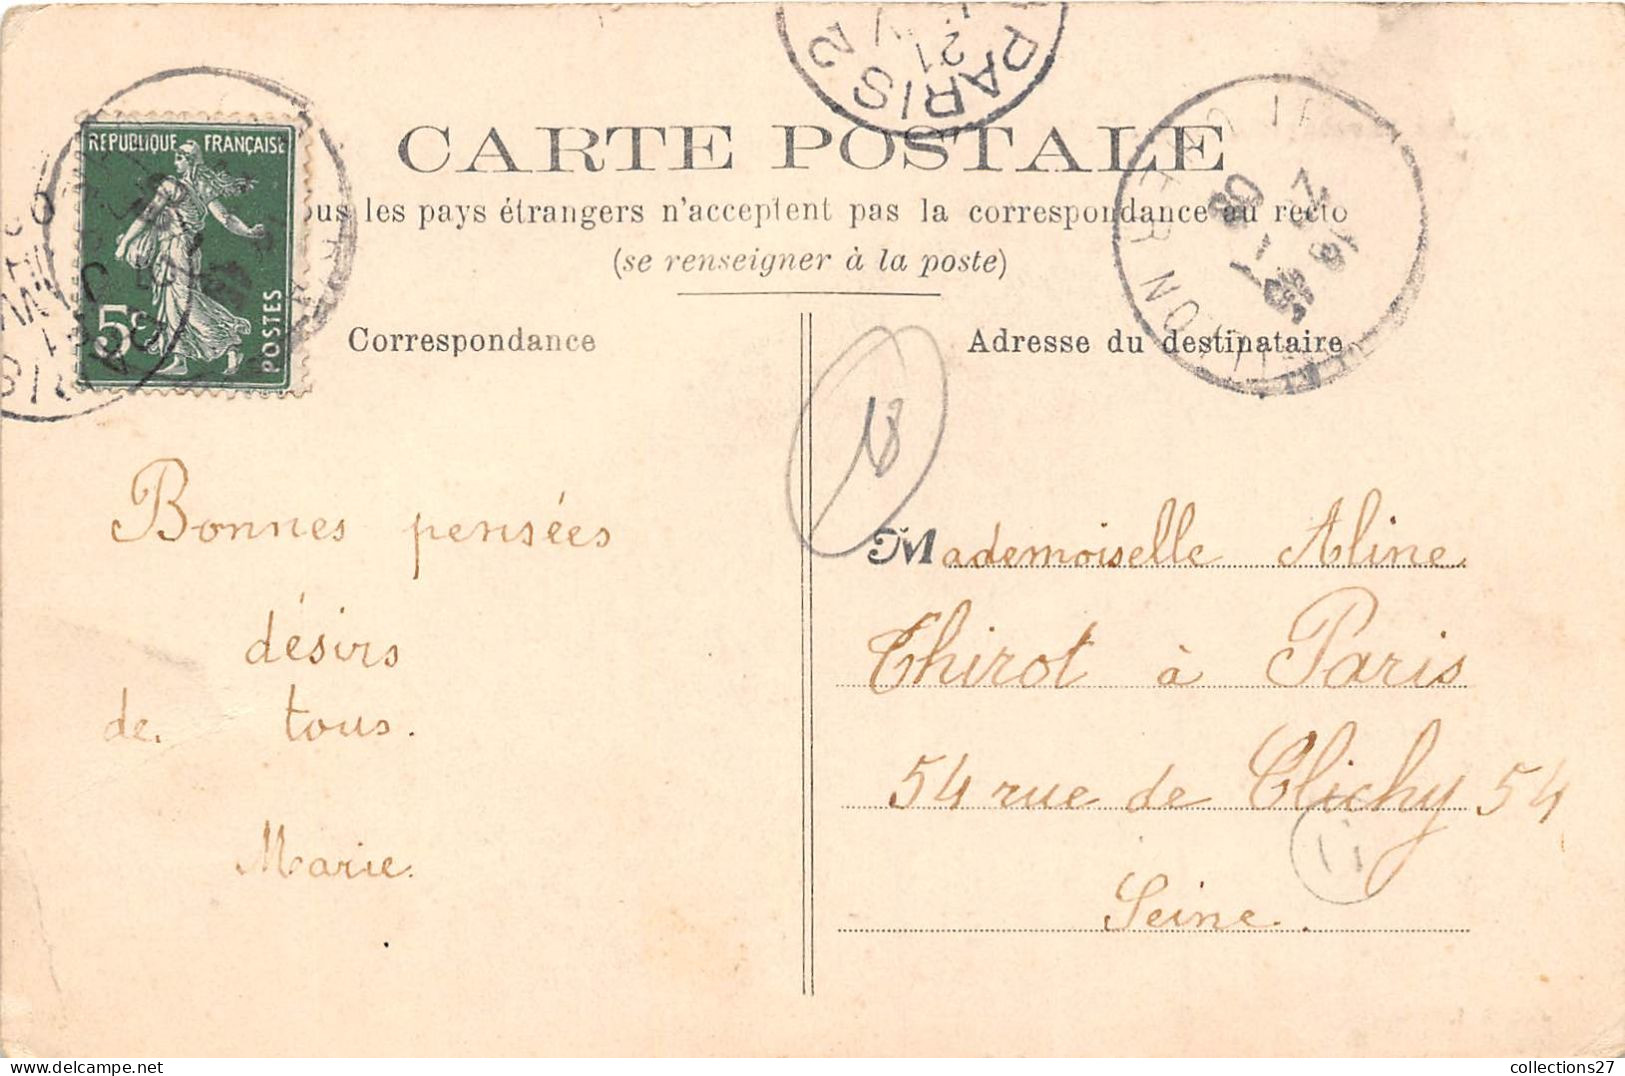 PARIS 2
21
RÉPUBLIQUE FRANÇAISE
5c
POSTES
CARTE POSTALE
ous les pays étrangers n'acceptent pas la correspondance au recto
(se renseigner à la poste)
Correspondance
Bonnes pensées
désirs
de tous.
Marie.
18
Adresse du destinataire
Mademoiselle Aline
Thirot à Paris
54 rue de Clichy 54
Seine.
collections27